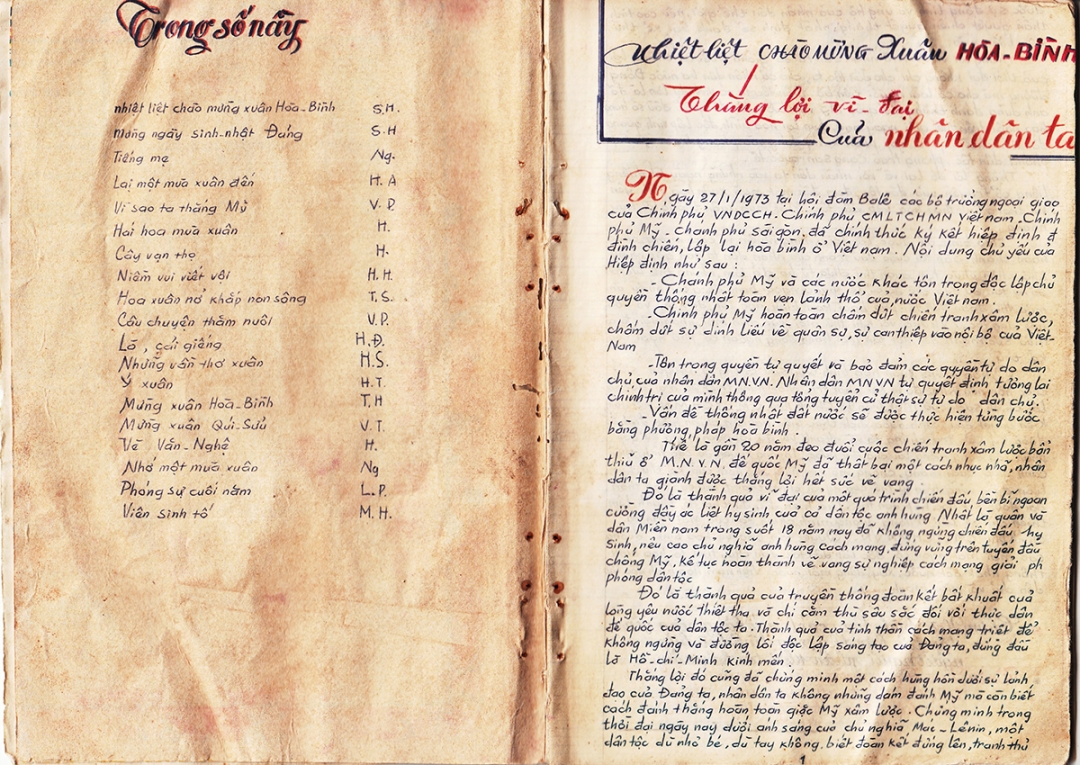 Trong số nầy
nhiệt liệt chào mừng xuân Hòa-Bình S.H.
Mừng ngày sinh-nhật Đảng S.H
Tiếng mẹ Ng.
Lại một mùa xuân đến H.A
Vì sao ta thắng Mỹ V.P.
Hái hoa mùa xuân H.
Cây vạn thọ H.
Niềm vui viết vội H.H.
Hoa xuân nở khắp non sông T.S.
Câu chuyện thăm nuôi V.P.
Lá, cái giếng H.Đ.
Những vần thơ xuân H.S.
Ý xuân H.T.
Mừng xuân Hòa-Bình T.H
Mừng xuân Quí-Sửu V.T.
Về Văn-Nghệ H.
Nhớ một mùa xuân Ng
Phóng sự cuối năm L.P.
Viên sinh tố M.H.
Nhiệt liệt CHÀO MỪNG Xuân HÒA-BÌNH
Thắng lợi vĩ-đại
Của nhân dân ta
Ngày 27/1/1973 tại hội đàm Balê các bộ trưởng ngoại giao
của Chính phủ VNDCCH. Chính phủ CMLTCHMN Việt nam. Chính
phủ Mỹ. Chánh phủ sài gòn, đã chính thức ký kết hiệp định đ
đình chiến, lập lại hòa bình ở Việt nam. Nội dung chủ yếu của
Hiệp định như sau:
_ Chánh phủ Mỹ và các nước khác tôn trọng độc lập chủ
quyền thống nhất toàn vẹn lãnh thổ của nước Việt nam.
_ Chính phủ Mỹ hoàn toàn chấm dứt chiến tranh xâm lược,
chấm dứt sự dính líu về quân sự, sự can thiệp vào nội bộ của Việt-
Nam
_ Tôn trọng quyền tự quyết và bảo đảm các quyền tự do dân
chủ của nhân dân M.N.V.N. Nhân dân MNVN tự quyết định tương lai
chính trị của mình thông qua tổng tuyển cử thật sự tự do dân chủ.
_ Vấn đề thống nhất đất nước sẽ được thực hiện từng bước
bằng phương pháp hòa bình.
Thế là gần 20 năm đeo đuổi cuộc chiến tranh xâm lược bẩn
thỉu ở M.N.V.N. đế quốc Mỹ đã thất bại một cách nhục nhã, nhân
dân ta giành được thắng lợi hết sức vẻ vang.
Đó là thành quả vĩ đại của một quá trình chiến đấu bền bỉ ngoan
cường đầy ác liệt hy sinh của cả dân tộc anh hùng. Nhất là quân và
dân Miền nam trong suốt 18 năm nay đã không ngừng chiến đấu hy
sinh, nêu cao chủ nghĩa anh hùng cách mạng, đứng vững trên tuyến đầu
chống Mỹ, kế tục hoàn thành vẻ vang sự nghiệp cách mạng giải ph
phóng dân tộc
Đó là thành quả của truyền thống đoàn kết bất khuất của
lòng yêu nước thiết tha và chí căm thù sâu sắc đối với thực dân
đế quốc của dân tộc ta. Thành quả của tinh thần cách mạng triệt để
không ngừng và đường lối độc lập sáng tạo của Đảng ta, đứng đầu
là Hồ-chí-Minh kính mến
Thắng lợi đó cũng đã chứng minh một cách hùng hồn dưới sự lãnh
đạo của Đảng ta, nhân dân ta không những dám đánh Mỹ mà còn biết
cách đánh thắng hoàn toàn giặc Mỹ xâm lược. Chứng minh trong
thời đại ngày nay dưới ánh sáng của chủ nghĩa Mác-Lênin, một
dân tộc dù nhỏ bé, dù tay không, biết đoàn kết đứng lên, tranh thủ
1